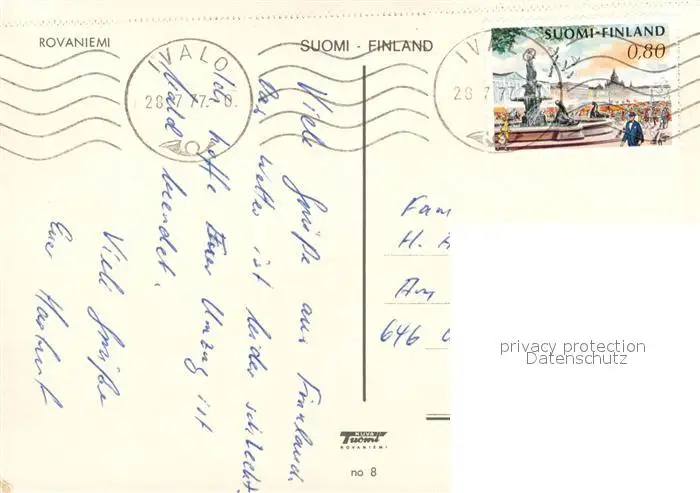 ROVANIEMI
SUOMI - FINLAND
IVALO
28.7.77.-8.
IVALO
28.7.77
SUOMI-FINLAND
0,80
Viele Grüße aus Finnland.
Das Wetter ist leider schlecht.
Ich hoffe Euer Umzug ist
bald beendet.
Viele Grüße
Euer Herbert
Fam
H.
Am
646
privacy protection
Datenschutz
KUVA
Tuomi
ROVANIEMI
no 8